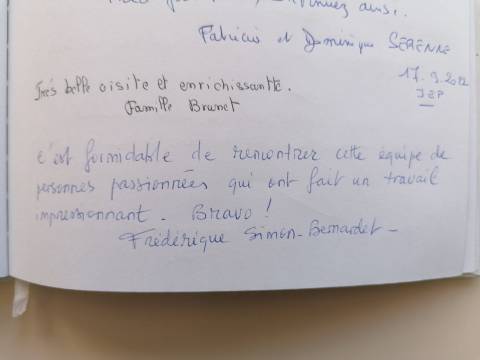 continuez ainsi.
Patricia et Dominique SERENNE
17.9.2022
JEP
Très belle visite et enrichissante.
Famille Brunet
c'est formidable de rencontrer cette équipe de
personnes passionnées qui ont fait un travail
impressionnant. Bravo!
Frédérique Simon-Bernardet -